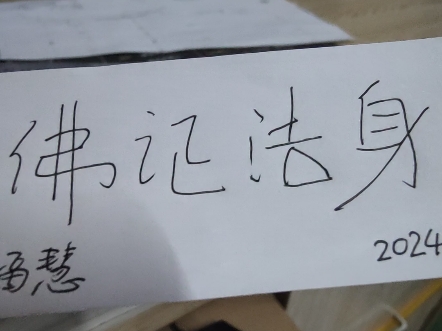 佛记法身
慧
2024